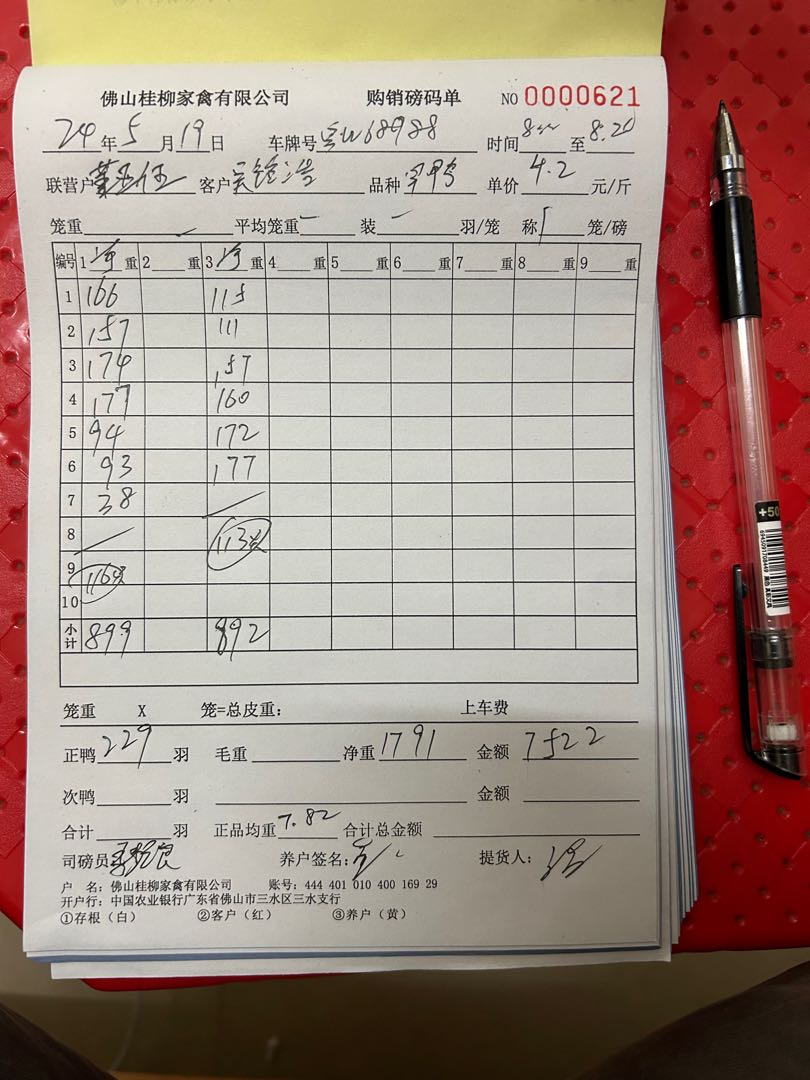 佛山桂柳家禽有限公司 购销磅码单 NO 0000621
24年5月19日 车牌号 68988 时间 8 至 8.20
联营户 客户 品种 单价 4.2 元/斤
笼重 平均笼重 一 装 一 羽/笼 称 笼/磅
编号 1 净 重 2 重 3 净 重 4 重 5 重 6 重 7 重 8 重 9 重
1 166 115
2 157 111
3 174 157
4 177 160
5 94 172
6 93 177
7 38
8 113只
9 116只
10
小计 899 892
笼重 X 笼=总皮重: 上车费
正鸭 229 羽 毛重 净重 1791 金额 7522
次鸭 羽 金额
合计 羽 正品均重 7.82 合计总金额
司磅员 养户签名: 提货人:
户 名: 佛山桂柳家禽有限公司 账号: 444 401 010 400 169 29
开户行: 中国农业银行广东省佛山市三水区三水支行
①存根（白） ②客户（红） ③养户（黄）
+50